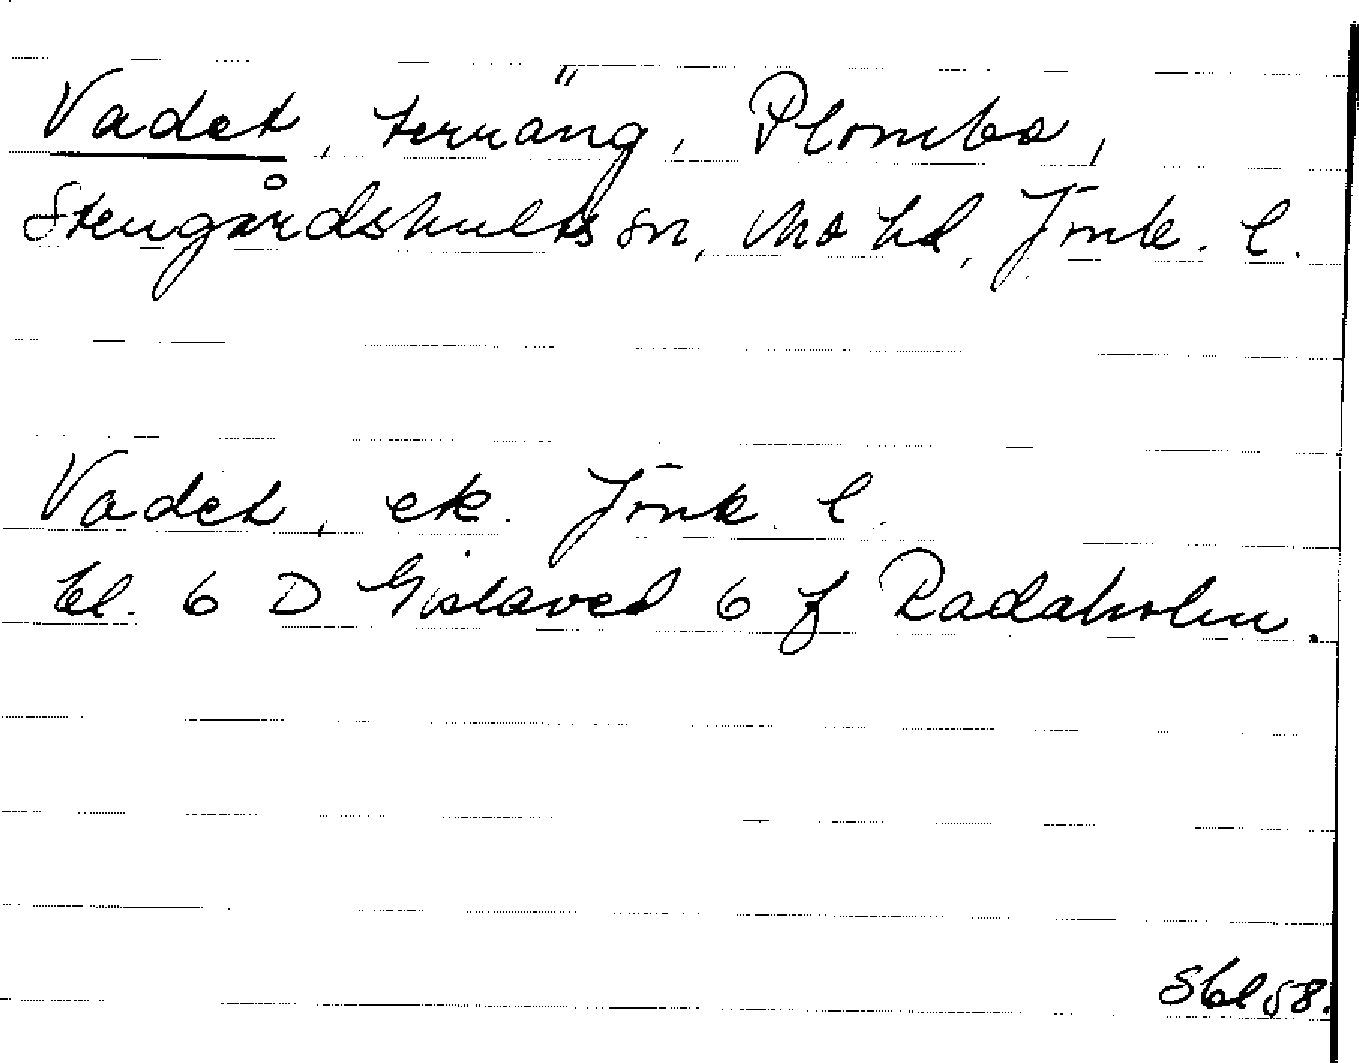 Vadet, terräng, Plombo,
Stengårdshults sn, Mo hd, Jönk. l.
Vadet, ek. Jönk. l.
bl. 6 D Gislaved 6 f Radaholm.
Sbl 58.